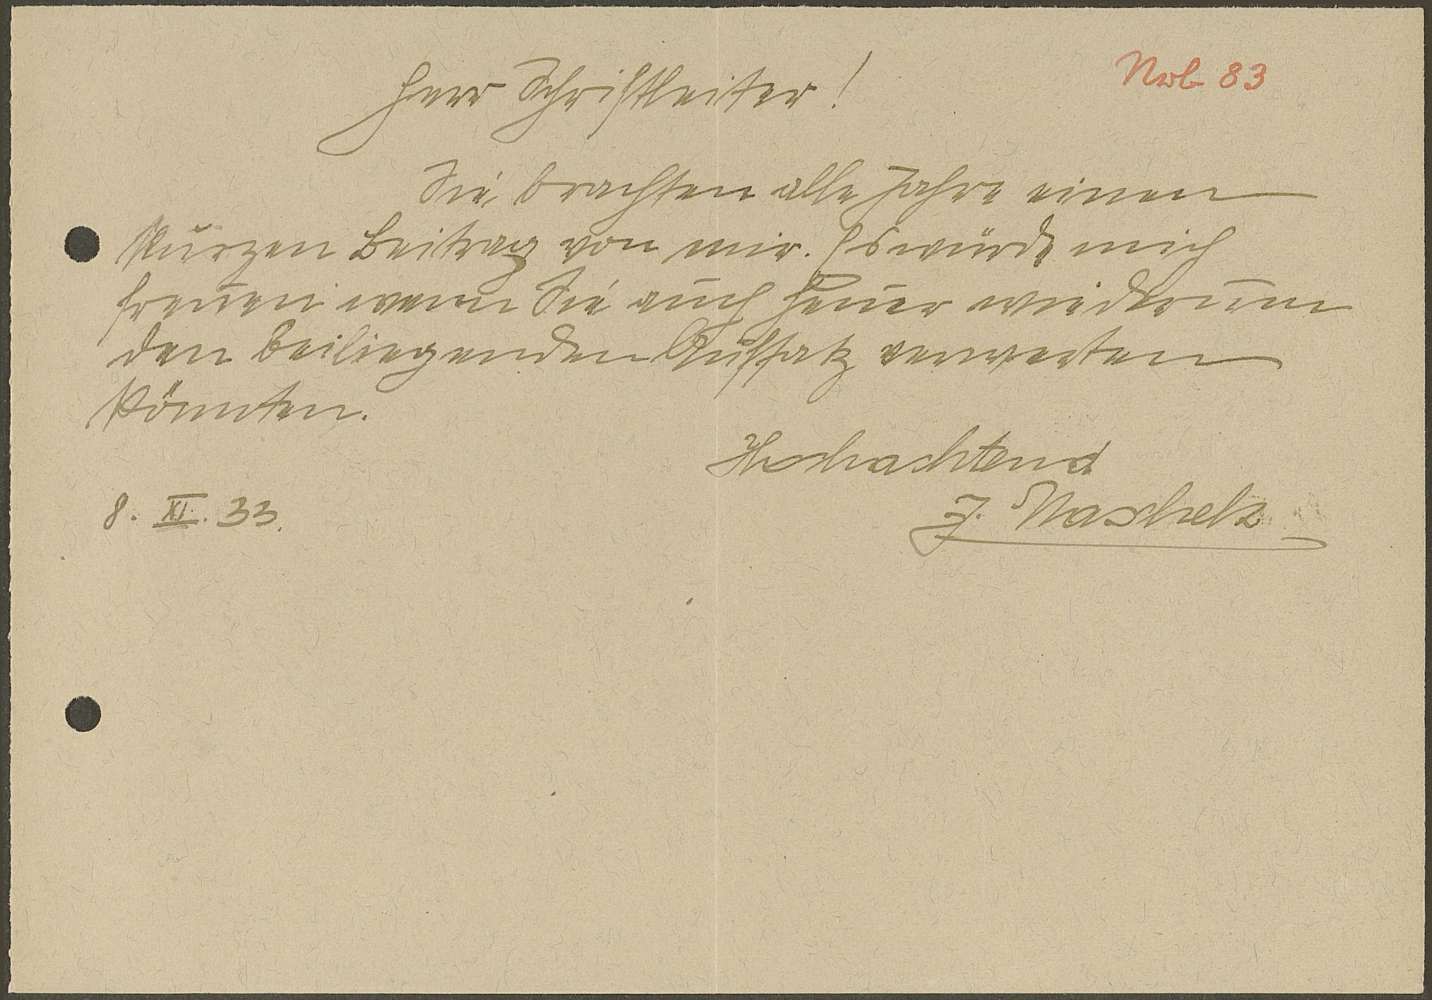 Nrb 83
Herr Schriftleiter!
Sie brachten alle Jahre einen
kurzen Beitrag von mir. Es würde mich
freuen wenn Sie auch heuer wiederum
den beiliegenden Aufsatz verwerten
könnten.
Hochachtend
8. XI. 33.
J. Maschek